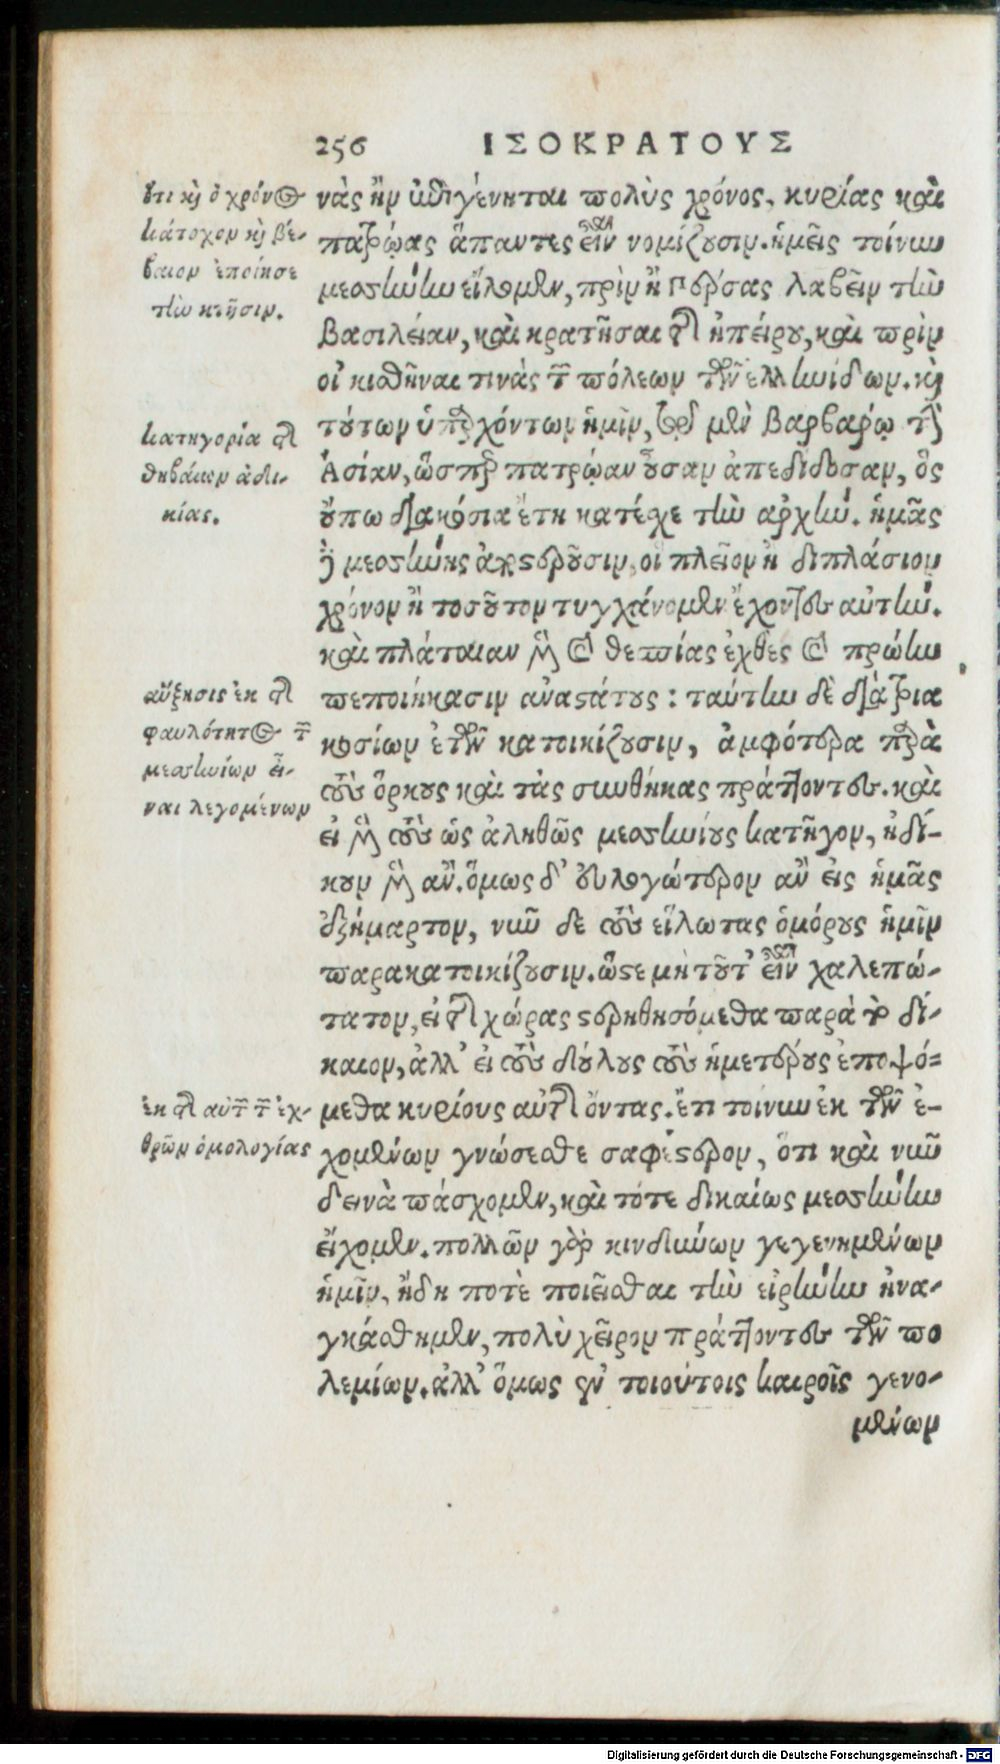 256 ΙΣΟΚΡΑΤΟΥΣ
ὅτι καὶ ὁ χρόνος
κάτοχον καὶ βέ-
βαιον ἐποίησε
τὴν κτῆσιν.
κατηγορία τῆς
θηβαίων ἀδι-
κίας.
αὔξησις ἐκ τῆς
φαυλότητος τῶν
μεσηνίων εἶ-
ναι λεγομένων
ἐκ τῆς αὐτῶν τῶν ἐχ-
θρῶν ὁμολογίας
νὰς ἢν ἐπιγένηται πολὺς χρόνος, κυρίας καὶ
πατρώας ἅπαντες εἶναι νομίζουσιν. ἡμεῖς τοίνυν
μεσήνην εἵλομεν, πρὶν ἢ Πέρσας λαβεῖν τὴν
βασιλείαν, καὶ κρατῆσαι τῆς ἠπείρου, καὶ πρὶν
οἰκισθῆναι τινὰς τῶν πόλεων τῶν ἑλληνίδων. καὶ
τούτων ὑπαρχόντων ἡμῖν, τῷ μὲν βαρβάρῳ τὴν
Ἀσίαν, ὥσπερ πατρῴαν οὖσαν ἀπεδίδοσαν, ὃς
οὔπω διακόσια ἔτη κατέχει τὴν ἀρχήν. ἡμᾶς
δὲ μεσήνης ἀποστεροῦσιν, οἳ πλεῖον ἢ διπλάσιον
χρόνον ἢ τοσοῦτον τυγχάνομεν ἔχοντες αὐτήν.
καὶ πλάταιαν μὲν καὶ θεσπίας ἐχθὲς καὶ πρώην
πεποιήκασιν ἀναστάτους: ταύτην δὲ διὰ τρια
κοσίων ἐτῶν κατοικίζουσιν, ἀμφότερα παρὰ
τοὺς ὅρκους καὶ τὰς συνθήκας πράττοντες. καὶ
εἰ μὲν τοὺς ὡς ἀληθῶς μεσηνίους κατῆγον, ἠδί-
κουν μὲν ἄν. ὅμως δ' εὐλογώτερον ἂν εἰς ἡμᾶς
ἐξήμαρτον, νῦν δὲ τοὺς εἵλωτας ὁμόρους ἡμῖν
παρακατοικίζουσιν. ὥστε μὴ τοῦτ' εἶναι χαλεπώ-
τατον, εἰ τῆς χώρας στερηθησόμεθα παρὰ τὸ δί-
καιον, ἀλλ' εἰ τοὺς δούλους τοὺς ἡμετέρους ἐποψό=
μεθα κυρίους αὐτῆς ὄντας. ἔτι τοίνυν ἐκ τῶν ἐ-
χομένων γνώσεσθε σαφέστερον, ὅτι καὶ νῦν
δεινὰ πάσχομεν, καὶ τότε δικαίως μεσήνην
εἴχομεν. πολλῶν γὰρ κινδύνων γεγενημένων
ἡμῖν, ἤδη ποτὲ ποιεῖσθαι τὴν εἰρήνην ἠνα-
γκάσθημεν, πολὺ χεῖρον πράττοντες τῶν πο
λεμίων. ἀλλ' ὅμως ἐν τοιούτοις καιροῖς γενο-
μένων
Digitalisierung gefördert durch die Deutsche Forschungsgemeinschaft - DFG